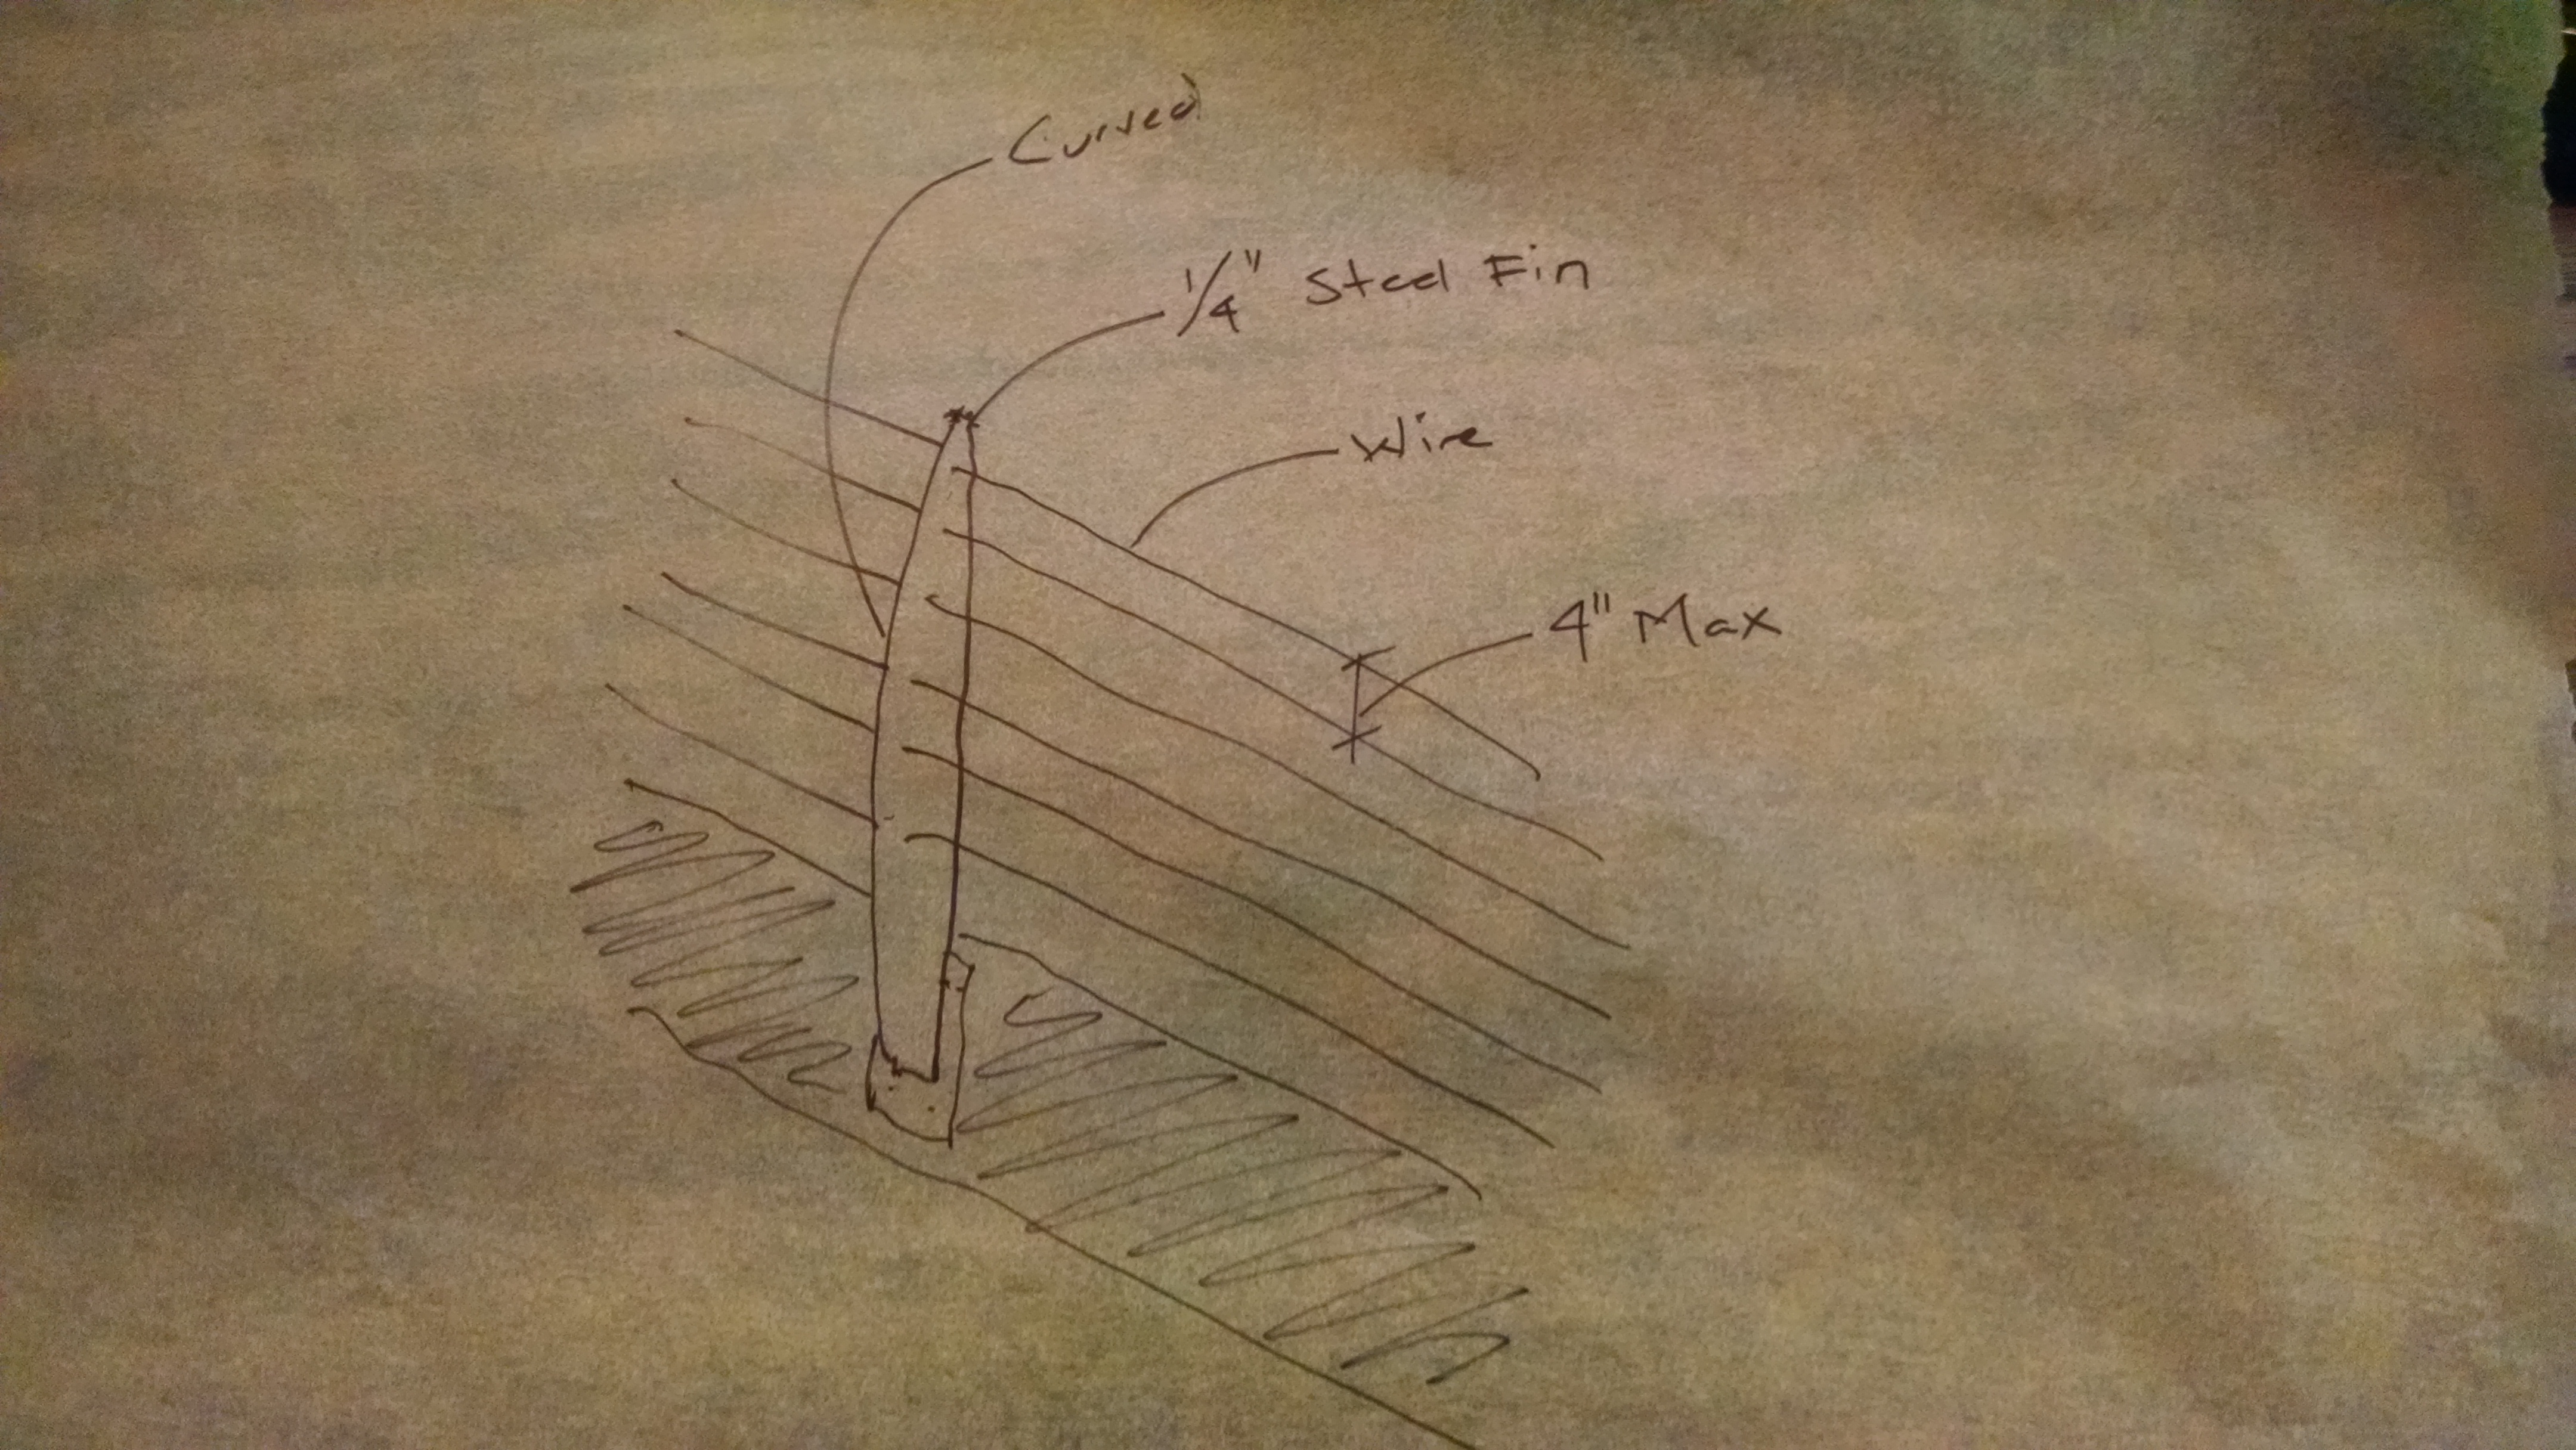 Curved
1/4" Steel Fin
Wire
4" Max